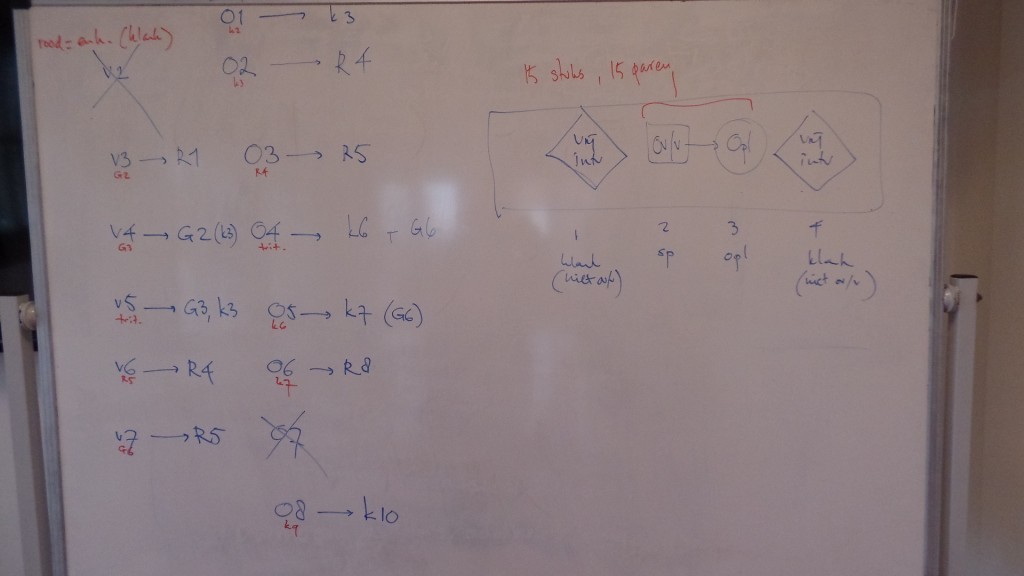 O1 → k3
k2
rood = enk. (klank)
v2
O2 → R4
k3
15 stuks, 15 paren
v3 → R1
G2
O3 → R5
R4
vrij
intv
Ov/v → Opl
vrij
intv
v4 → G2 (k3)
G3
O4 → k6 G6
trit.
1 2 3 4
klank
(niet ov/v)
sp
opl
klank
(niet ov/v)
v5 → G3, k3
trit.
O5 → k7 (G6)
k6
v6 → R4
R5
O6 → R8
k7
v7 → R5
G6
O7
O8 → k10
k9